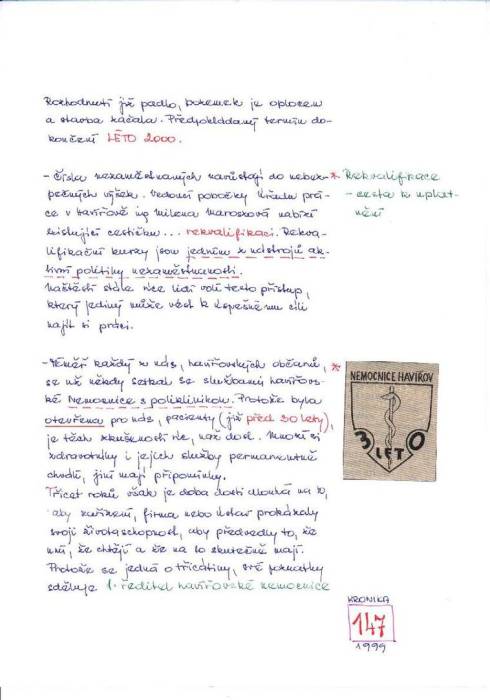 Rozhodnutí již padlo, pozemek je oplocen
a stavba začala. Předpokládaný termín do-
končení LÉTO 2000.
- Čísla nezaměstnaných narůstají do nebez-
pečných výšek. Vedoucí pobočky Úřadu prá-
ce v Havířově ing Milena Maroszová nabízí
existující cestičku... rekvalifikaci. Rekva-
lifikační kurzy jsou jedním z nástrojů ak-
tivní politiky nezaměstnanosti.
Naštěstí stále více lidí volí tento přístup,
který jediný může vést k úspěšnému cíli
najít si práci.
* Rekvalifikace
- cesta k uplat-
nění
- Téměř každý z nás, havířovských občanů,
se už někdy setkal se službami havířov-
ské Nemocnice s poliklinikou. Protože byla
otevřena pro nás, pacienty (již před 30 lety),
je těch zkušeností víc, než dost. Mnozí si
zdravotníky i jejich služby permanentně
chválí, jiní mají připomínky.
Třicet roků však je doba dosti dlouhá na to,
aby zařízení, firma nebo ústav prokázaly
svoji životaschopnost, aby předvedly to, že
umí, že chtějí a že na to skutečně mají.
Protože se jedná o třicátiny, své poznatky
sděluje 1. ředitel havířovské nemocnice
*
NEMOCNICE HAVÍŘOV
30
LET
KRONIKA
147
1999